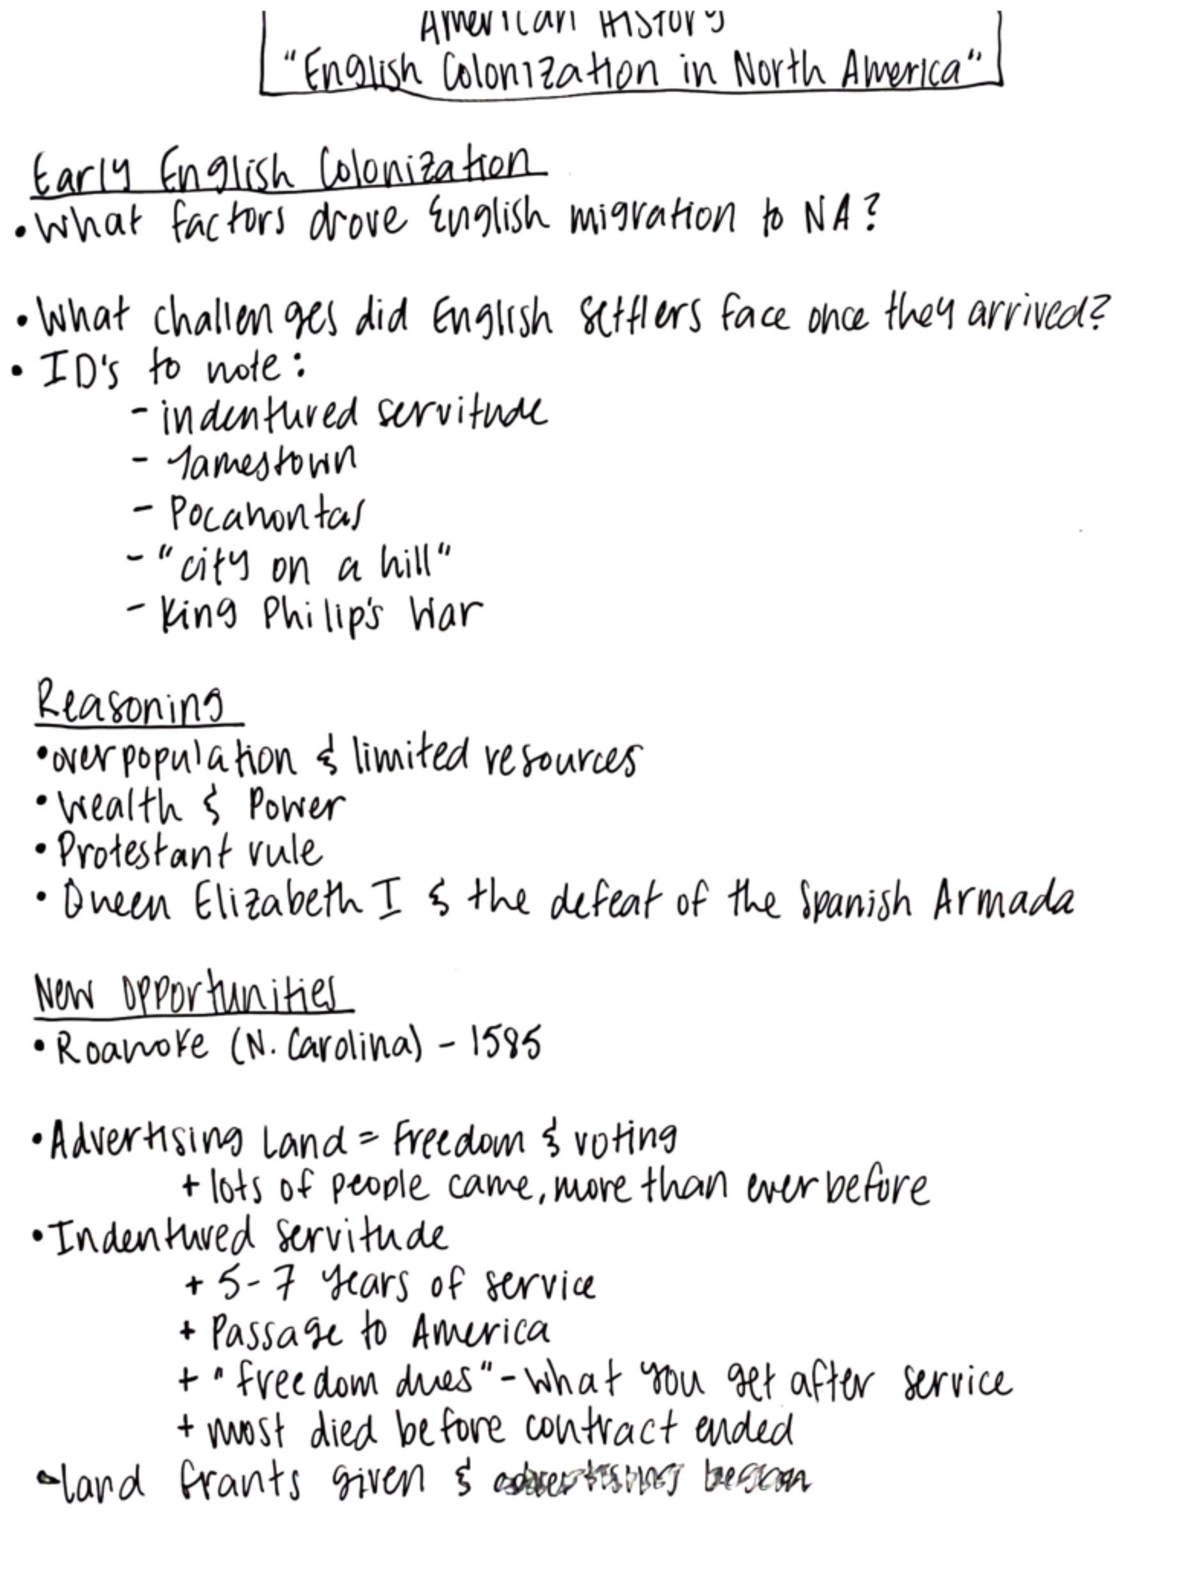 American History
"English Colonization in North America"
Early English Colonization
• What factors drove English migration to NA?
• What challenges did English settlers face once they arrived?
• ID's to note:
- indentured servitude
- Jamestown
- Pocahontas
- "city on a hill"
- King Philip's War
Reasoning
• overpopulation & limited resources
• Wealth & Power
• Protestant rule
• Queen Elizabeth I & the defeat of the Spanish Armada
New Opportunities
• Roanoke (N. Carolina) - 1585
• Advertising Land = Freedom & voting
+ lots of people came, more than ever before
• Indentured servitude
+ 5-7 years of service
+ Passage to America
+ "freedom dues" - what you get after service
+ most died before contract ended
• land grants given & advertising began